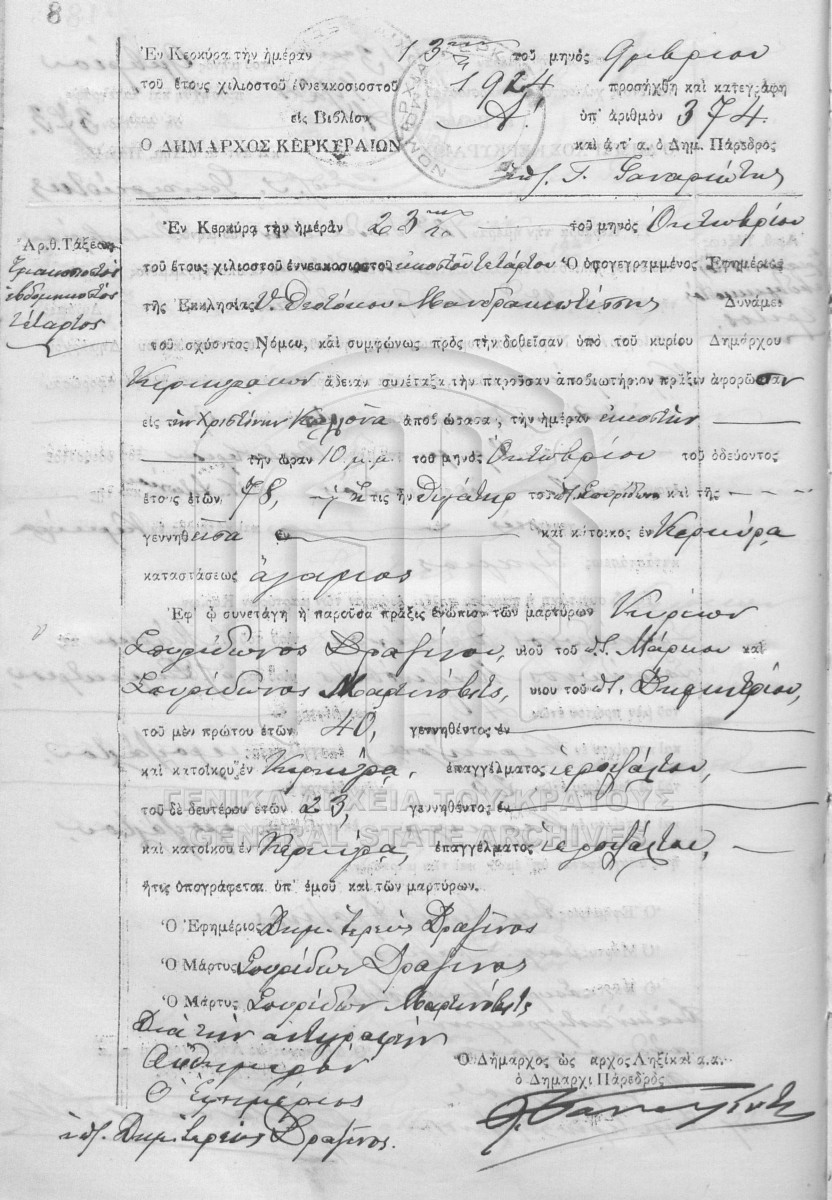 8
Ἐν Κερκύρᾳ τὴν ἡμέραν 13ην τοῦ μηνός 9μβρίου
τοῦ ἔτους χιλιοστοῦ ἐννεακοσιοστοῦ 1924 προσήχθη καὶ κατεγράφη
εἰς Βιβλίον Α! ὑπ' ἀριθμὸν 374
Ο ΔΗΜΑΡΧΟΣ ΚΕΡΚΥΡΑΙΩΝ καὶ ἀντ' α. ὁ Δημ. Πάρεδρος
Ἐν Κερκύρᾳ τὴν ἡμέραν 23ην τοῦ μηνὸς Ὀκτωβρίου
Ἀριθ. Τάξεως
Τριακοσιοστός
ἑβδομηκοστός
τέταρτος
τοῦ ἔτους χιλιοστοῦ ἐννεακοσιοστοῦ εἰκοστοῦ τετάρτου Ὁ ὑπογεγραμμένος Ἐφημέριος
τῆς Ἐκκλησίας Υ. Θεοτόκου Μανδρακιωτίσσης Δυνάμει
τοῦ ἰσχύοντος Νόμου, καὶ συμφώνως πρὸς τὴν δοθεῖσαν ὑπὸ τοῦ κυρίου Δημάρχου
Κερκυραίων ἄδειαν συνέταξα τὴν παροῦσαν ἀποβιωτήριον πρᾶξιν ἀφορῶσαν
εἰς τὴν Χριστίναν ἀποβιώσασα, τὴν ἡμέραν εἰκοστὴν
τὴν ὥραν 10 μ.μ. τοῦ μηνὸς Ὀκτωβρίου τοῦ ὁδεύοντος
ἔτους ἐτῶν 78, ἥτις ἦν θυγάτηρ τοῦ π. Σπυρίδωνος καὶ τῆς
γεννηθεῖσα ἐν καὶ κάτοικος ἐν Κερκύρᾳ
καταστάσεως ἄγαμος
Ἐφ' ᾧ συνετάγη ἡ παροῦσα πρᾶξις ἐνώπιον τῶν μαρτύρων Κυρίων
Σπυρίδωνος Δραζίνου, υἱοῦ τοῦ π. Μάρκου καὶ
Σπυρίδωνος Μαρτινόβιτς, υἱοῦ τοῦ π. Δημητρίου,
τοῦ μὲν πρώτου ἐτῶν 40, γεννηθέντος ἐν
καὶ κατοίκου ἐν Κερκύρᾳ, ἐπαγγέλματος ἱεροψάλτου,
τοῦ δὲ δευτέρου ἐτῶν 23, γεννηθέντος ἐν
καὶ κατοίκου ἐν Κερκύρᾳ, ἐπαγγέλματος ἱεροψάλτου,
ἥτις ὑπογράφεται ὑπ' ἐμοῦ καὶ τῶν μαρτύρων.
Ὁ Ἐφημέριος Δημ. Ἱερεὺς Δραζίνος
Ὁ Μάρτυς Σπυρίδων Δραζίνος
Ὁ Μάρτυς Σπυρίδων Μαρτινόβιτς
Διὰ τὴν ἀντιγραφὴν
Αὐθημερόν
Ὁ Ἐφημέριος
ὑπ. Δημ. Ἱερεὺς Δραζίνος.
Ὁ Δήμαρχος ὡς αρχος Ληξίκαὶ α.α.
ὁ Δημαρχι Πάρεδρος
ΓΕΝΙΚΑ ΑΡΧΕΙΑ ΤΟΥ ΚΡΑΤΟΥΣ
GENERAL STATE ARCHIVES